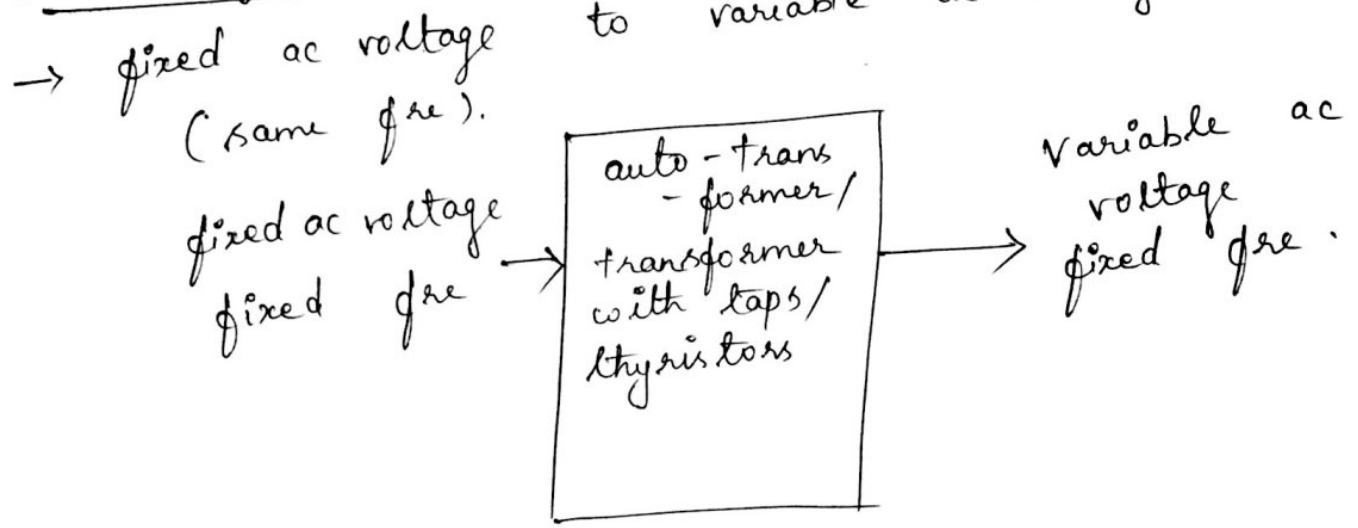 → fixed ac voltage to variable
(same fre).
fixed ac voltage
fixed fre
auto-trans
-former/
transformer
with taps/
thyristors
variable ac
voltage
fixed fre.